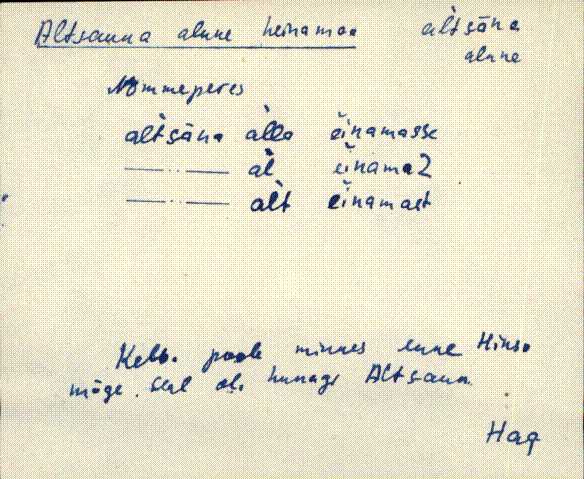 Altsauna alune heinamaa
al̀tsāna
alune
Nõmmeperes
al̀tsāna àlla èinamasse
—··— àl èinamaZ
—··— àlt èinamast
poole minnes enne Hinso
mäge. Seal oli kunagi Altsauna
Hag